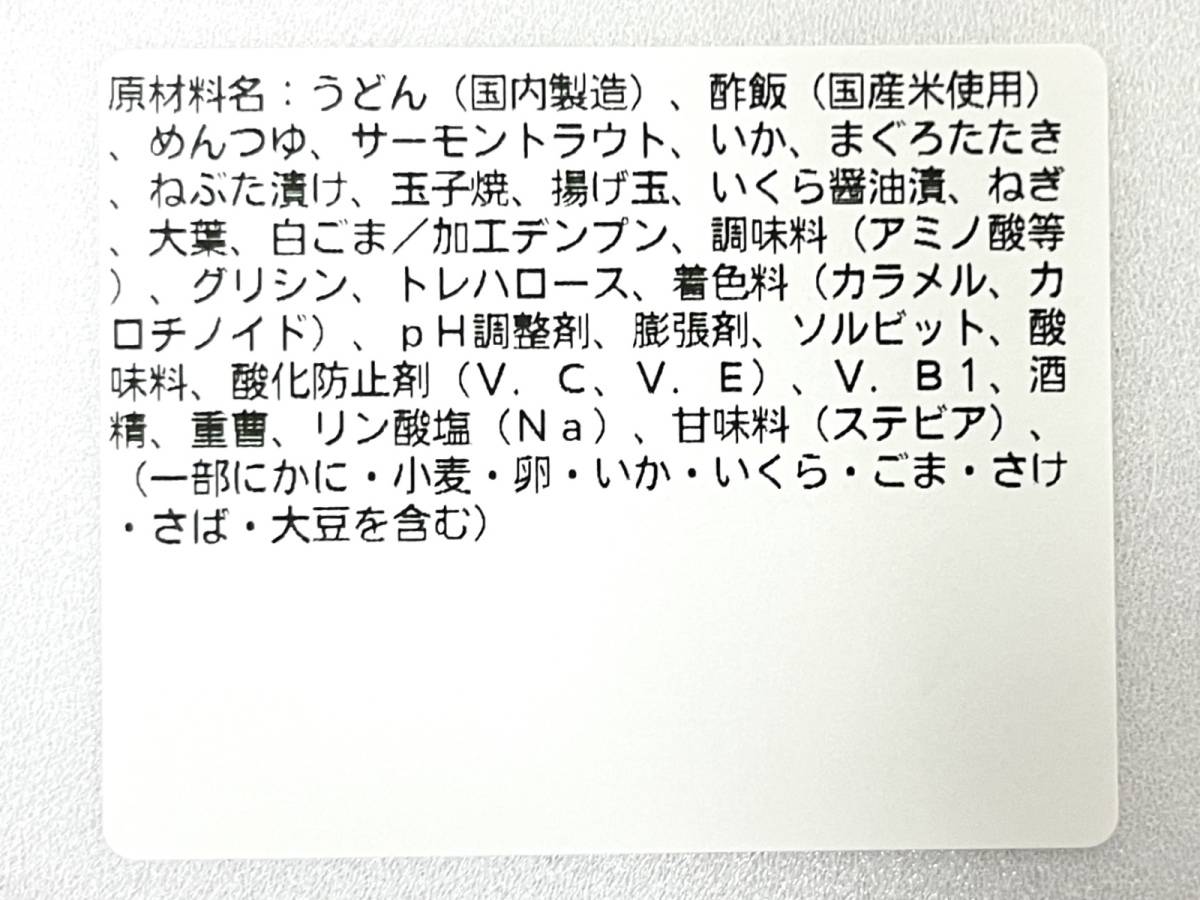 原材料名：うどん（国内製造）、酢飯（国産米使用）
、めんつゆ、サーモントラウト、いか、まぐろたたき
、ねぶた漬け、玉子焼、揚げ玉、いくら醤油漬、ねぎ
、大葉、白ごま／加工デンプン、調味料（アミノ酸等
）、グリシン、トレハロース、着色料（カラメル、カ
ロチノイド）、ｐＨ調整剤、膨張剤、ソルビット、酸
味料、酸化防止剤（Ｖ．Ｃ、Ｖ．Ｅ）、Ｖ．Ｂ１、酒
精、重曹、リン酸塩（Ｎａ）、甘味料（ステビア）、
（一部にかに・小麦・卵・いか・いくら・ごま・さけ
・さば・大豆を含む）